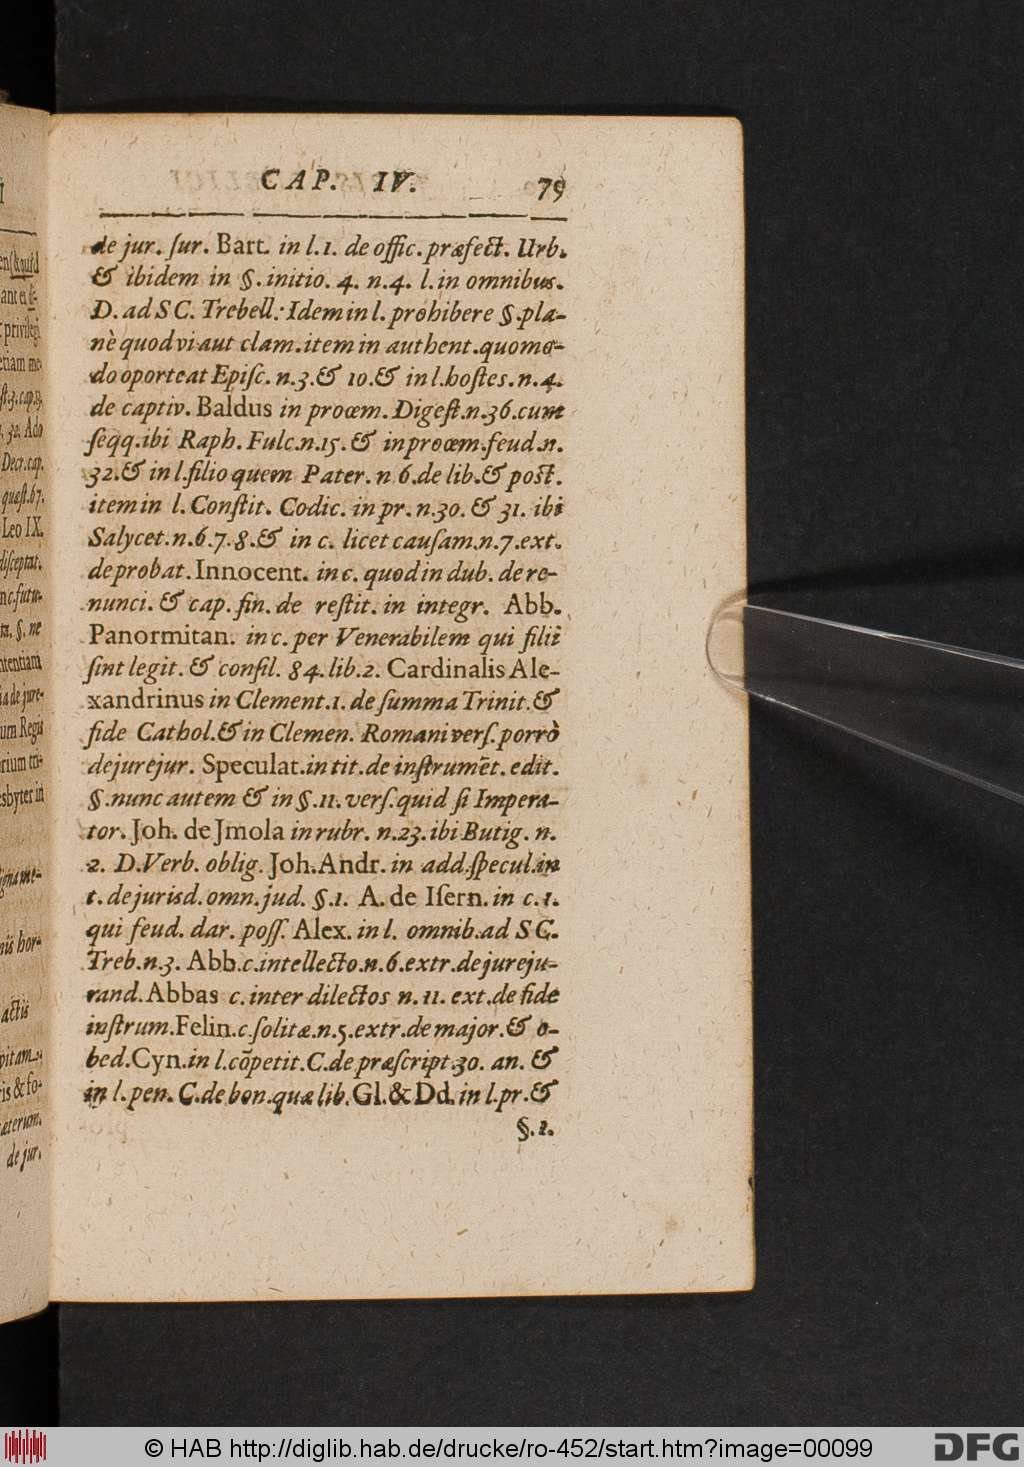 CAP. IV. 79
de jur. ſur. Bart. in l. 1. de offic. præfect. Urb.
& ibidem in §. initio. 4. n. 4. l. in omnibus.
D. ad S C. Trebell: Idem in l. prohibere §. pla-
nè quod vi aut clam. item in authent. quomo-
do oporteat Epiſc. n. 3. & 10. & in l. hostes. n. 4.
de captiv. Baldus in proœm. Digeſt. n. 36. cum
ſeqq. ibi Raph. Fulc. n. 15. & in proœm. feud. n.
32. & in l. filio quem Pater. n 6. de lib. & poſt.
item in l. Conſtit. Codic. in pr. n. 30. & 31. ibi
Salycet. n. 6. 7. 8. & in c. licet cauſam. n. 7. ext.
de probat. Innocent. in c. quod in dub. de re-
nunci. & cap. fin. de reſtit. in integr. Abb.
Panormitan. in c. per Venerabilem qui filii
ſint legit. & conſil. 84. lib. 2. Cardinalis Ale-
xandrinus in Clement. 1. de ſumma Trinit. &
fide Cathol. & in Clemen. Romani verſ. porrò
de jurejur. Speculat. in tit. de inſtrumēt. edit.
§. nunc autem & in §. 11. verſ. quid ſi Impera-
tor. Joh. de Jmola in rubr. n. 23. ibi Butig. n.
2. D. Verb. oblig. Joh. Andr. in add. ſpecul. in
t. de jurisd. omn. jud. §. 1. A. de Iſern. in c. 1.
qui feud. dar. poſſ. Alex. in l. omnib. ad S C.
Treb. n. 3. Abb. c. intellecto. n. 6. extr. de jureju-
rand. Abbas c. inter dilectos n. 11. ext. de fide
inſtrum. Felin. c. ſolitæ. n. 5. extr. de major. & o-
bed. Cyn. in l. cōpetit. C. de præſcript. 30. an. &
in l. pen. C. de bon. quæ lib. Gl. & Dd. in l. pr. &
§. 1.
privilegi
Decr. cap.
quæſt. 67.
Leo IX.
diſceptat.
§. ne
um Regis
sbyter in
nis hor-
actis
is & fo-
de jur.
© HAB http://diglib.hab.de/drucke/ro-452/start.htm?image=00099
DFG